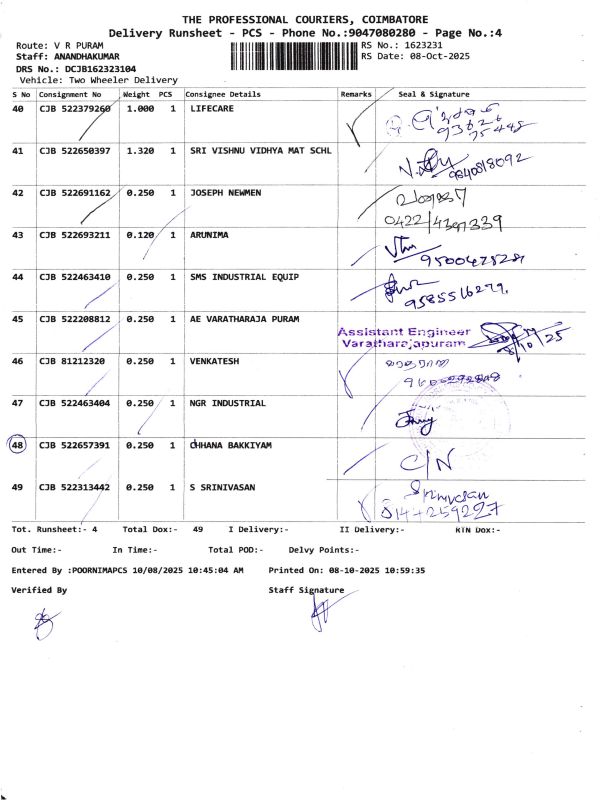 THE PROFESSIONAL COURIERS, COIMBATORE
Delivery Runsheet - PCS - Phone No.:9047080280 - Page No.:4
Route: V R PURAM RS No.: 1623231
Staff: ANANDHAKUMAR RS Date: 08-Oct-2025
DRS No.: DCJB162323104
Vehicle: Two Wheeler Delivery
S No Consignment No Weight PCS Consignee Details Remarks Seal & Signature
40 CJB 522379260 1.000 1 LIFECARE
93626
75448
41 CJB 522650397 1.320 1 SRI VISHNU VIDHYA MAT SCHL
9840818092
42 CJB 522691162 0.250 1 JOSEPH NEWMEN
0422/4397339
43 CJB 522693211 0.120 1 ARUNIMA
44 CJB 522463410 0.250 1 SMS INDUSTRIAL EQUIP
9585516279
45 CJB 522208812 0.250 1 AE VARATHARAJA PURAM
Assistant Engineer
Varatharajapuram 8/10/25
46 CJB 81212320 0.250 1 VENKATESH
47 CJB 522463404 0.250 1 NGR INDUSTRIAL
48 CJB 522657391 0.250 1 CHHANA BAKKIYAM C/N
49 CJB 522313442 0.250 1 S SRINIVASAN Srinivasan
8144259227
Tot. Runsheet:- 4 Total Dox:- 49 I Delivery:- II Delivery:- RTN Dox:-
Out Time:- In Time:- Total POD:- Delvy Points:-
Entered By :POORNIMAPCS 10/08/2025 10:45:04 AM Printed On: 08-10-2025 10:59:35
Verified By Staff Signature